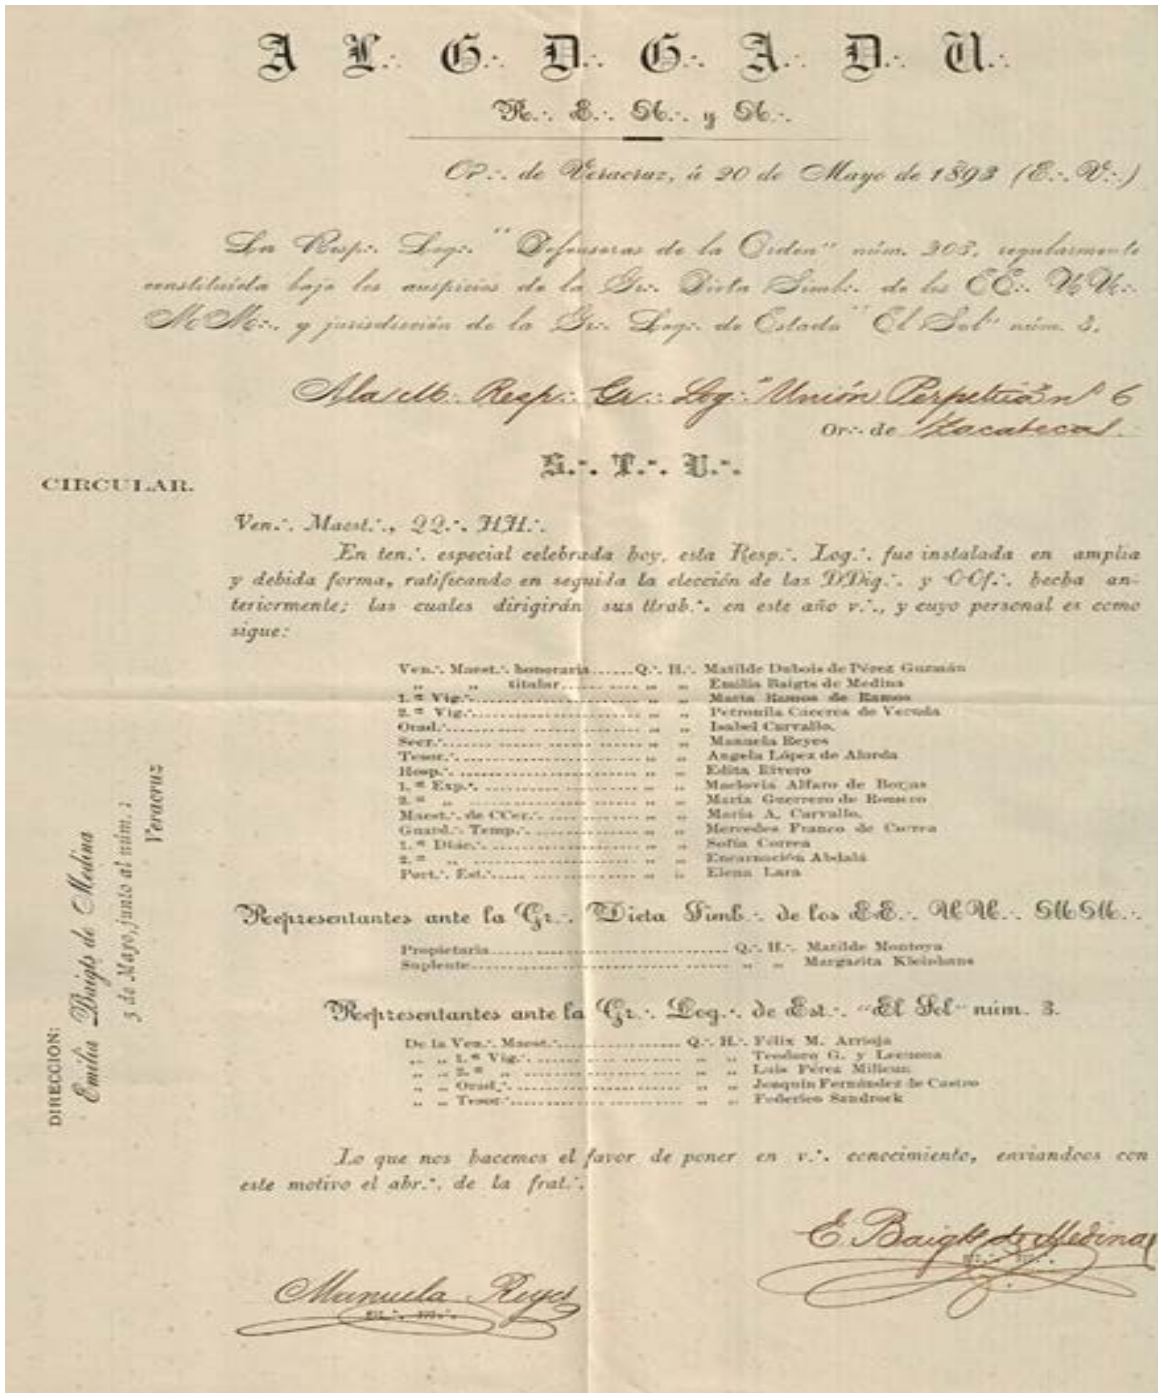 A L∴ G∴ D∴ G∴ A∴ D∴ U∴
R∴ E∴ A∴ y A∴
Or∴ de Veracruz, á 20 de Mayo de 1893 (E∴ V∴)
La Resp∴ Log∴ "Defensoras de la Orden" núm. 203, regularmente
constituída bajo los auspicios de la Gr∴ Dieta Simb∴ de los EE∴ UU∴
MM∴ y jurisdicción de la Gr∴ Log∴ de Estado "El Sol" núm. 3.
A la M∴ Resp∴ Gr∴ Log∴ "Unión Perpetua" nº 6
Or∴ de Zacatecas.
S∴ T∴ U∴
CIRCULAR.
Ven∴ Maest∴, QQ∴ HH∴
En ten∴ especial celebrada hoy, esta Resp∴ Log∴ fue instalada en amplia
y debida forma, ratificando en seguida la elección de las DDig∴ y OOf∴ hecha an-
teriormente; las cuales dirigirán sus ttrab∴ en este año v∴, y cuyo personal es como
sigue:
Ven∴ Maest∴ honoraria...... Q∴ H∴ Matilde Dubois de Pérez Guzmán
„ „ titular...... „ „ Emilia Baigts de Medina
1.ª Vig∴...... „ „ Marta Ramos de Ramos
2.ª Vig∴...... „ „ Petronila Cáceres de
Orad∴...... „ „ Isabel Carvallo.
Secr∴...... „ „ Manuela Reyes
Tesor∴...... „ „ Angela López de Alarda
Hosp∴...... „ „ Edita Rivero
1.ª Exp∴...... „ „ Maclovia Alfaro de Borjas
2.ª „ ...... „ „ María Guerrero de Romero
Maest∴ de CCer∴...... „ „ María A. Carvallo.
Guard∴ Temp∴...... „ „ Mercedes Franco de Correa
1.ª Diác∴...... „ „ Sofía Correa
2.ª „ ...... „ „ Encarnación Abdalá
Port∴ Est∴...... „ „ Elena Lara
Representantes ante la Gr∴ Dieta Simb∴ de los EE∴ UU∴ MM∴
Propietaria...... Q∴ H∴ Matilde Montoya
Suplente...... „ „ Margarita Kleinhans
Representantes ante la Gr∴ Log∴ de Est∴ "El Sol" núm. 3.
De la Ven∴ Maest∴...... Q∴ H∴ Félix M. Arrioja
„ „ 1.ª Vig∴...... „ „ Teodoro G. y Lecuona
„ „ 2.ª „ ...... „ „ Luis Pérez Milicua
„ „ Orad∴...... „ „ Joaquín Fernández de Castro
„ „ Tesor∴...... „ „ Federico Sandrock
Lo que nos hacemos el favor de poner en v∴ conocimiento, enviandoos con
este motivo el abr∴ de la frat∴
E. Baigts de Medina
Manuela Reyes
DIRECCION:
Emilia Baigts de Medina
5 de Mayo, junto al núm. 2
Veracruz